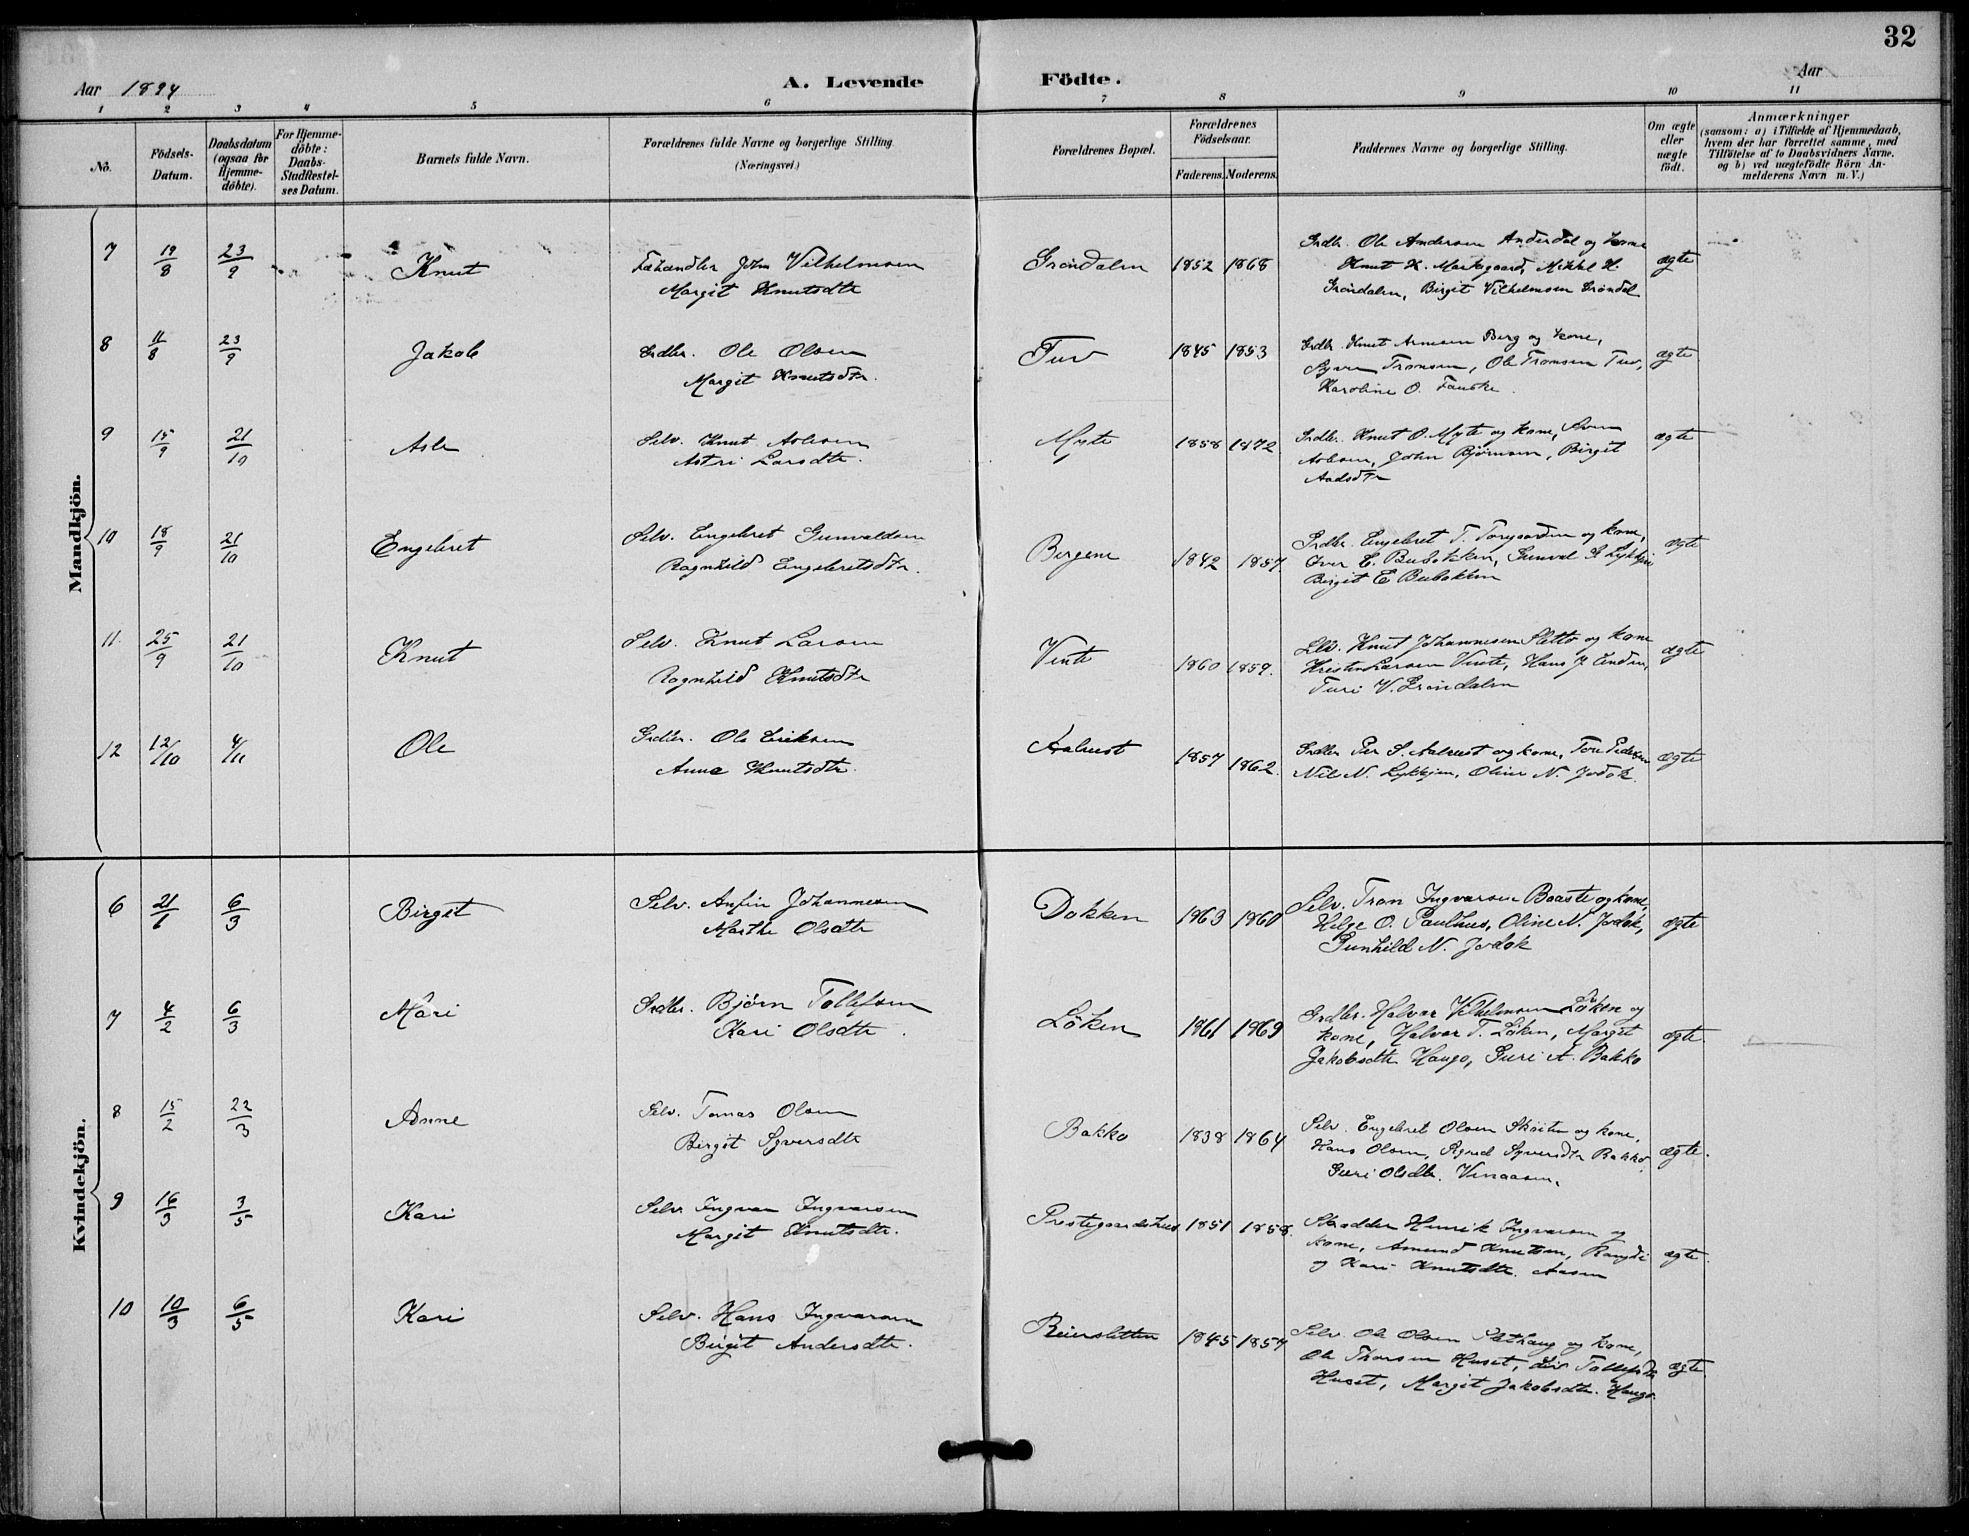 32
Aar 1894
A. Levende Födte.
Aar
1 2 3 4 5 6 7 8 9 10 11
No.
Födsels-Datum.
Daabsdatum (ogsaa for Hjemme-döbte).
For Hjemme-döbte: Daabs-Stadfestel-ses Datum.
Barnets fulde Navn.
Forældrenes fulde Navne og borgerlige Stilling
(Næringsvei.)
Forældrenes Bopæl.
Forældrenes Födselsaar.
Faderens. Moderens.
Faddernes Navne og borgerlige Stilling.
Om ægte eller uægte födt.
Anmærkninger
(saasom: a) i Tilfælde af Hjemmedaab,
hvem der har forrettet samme, med
Tilföielse af to Daabsvidners Navne,
og b) ved uægtefödte Börn An-
melderens Navn m. V.)
Mandkjön.
7 19/8 23/9 Knut Fæhandler John Vilhelmsen Gröndalen 1852 1868 Grdbr. Ole Andersen Anderdal og kone ægte
Margit Knutsdtr Knut K. Markegaard, Mikkel H.
Gröndalen, Birgit Vilhelmsen Gröndal
8 11/8 23/9 Jakob Grdbr. Ole Olsen Tuv 1845 1853 Grdbr. Knut Arnesen Berg og kone, ægte
Margit Knutsdtr. Syver Tronsen, Ole Tronsen Tuv,
Karoline O. Fauske.
9 15/9 21/10 Asle Selv. Knut Aslesen Myte 1858 1872 Grdbr. Knut O. Myte og kone, ægte
Astri Larsdtr. Aslesen, John Björnsen, Birgit
Aadsdtr
10 18/9 21/10 Engebret Selv. Engebret Gunvaldsen Bergene 1842 1857. Grdbr. Engebret T. Torgaarden og kone, ægte
Ragnhild Engebretsdtr. Iver E. Bubakken, Gunval
Birgit E Bubakken
11. 25/9 21/10 Knut Selv. Knut Larsen Vinte 1860 1859. Selv. Knut Johannesen Sletto og kone ægte
Ragnhild Knutsdtr Kristen Larsen Vinte, Hans
Turi V. Gröndalen
12 12/10 4/11 Ole Grdbr. Ole Eriksen Aalrust 1857 1862. Grdbr Per S. Aalrust og kone, Tore Pedersen ægte
Anne Knutsdtr. Nils N. Lykkjen, Oline N. Jordok.
Kvindekjön.
6 21/1 6/3 Birgit Selv. Anfin Johannesen Dokken 1863 1860 Selv. Tron Ingvarsen Baaste og kone, ægte
Marthe Olsdtr Helge O. Paulhus, Oline N. Jordok,
Gunhild N. Jordok
7 4/2 6/3 Mari Grdbr. Björn Tollefsen Löken 1861 1869 Grdbr. Halvor Vilhelmsen Löken og ægte.
Kari Olsdtr. kone, Halvor T. Löken, Margit
Jakobsdtr Haugo, Guri A. Bakko
8 15/2 22/3 Anne Selv. Tomas Olsen Bakko 1838 1864 Selv. Engebret Olsen Sköiten og kone, ægte.
Birgit Syversdtr Hans Olsen, Syversdtr Bakko,
Guri Olsdtr.
9 16/3 3/5 Kari Selv. Ingvar Ingvarsen Prestegaardshus 1851 1858. Skrædder Henrik Ingvarsen og ægte.
Margit Knutsdtr. kone, Amund Knutsen, Rangdi
og Kari Knutsdtr. Aasen
10 10/3 6/5 Kari Selv. Hans Ingvarsen Beiersletten 1845 1857 Selv. Ole Olsen Slethaug og kone, ægte.
Birgit Andersdtr. Ole Thorsen Huset, Liv Tollefsdtr
Huset, Margit Jakobsdtr. Haugo.